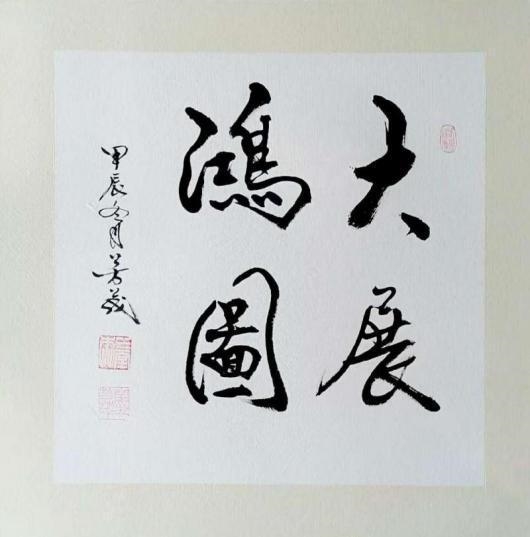 大展
鴻圖
甲辰冬月 芳茂